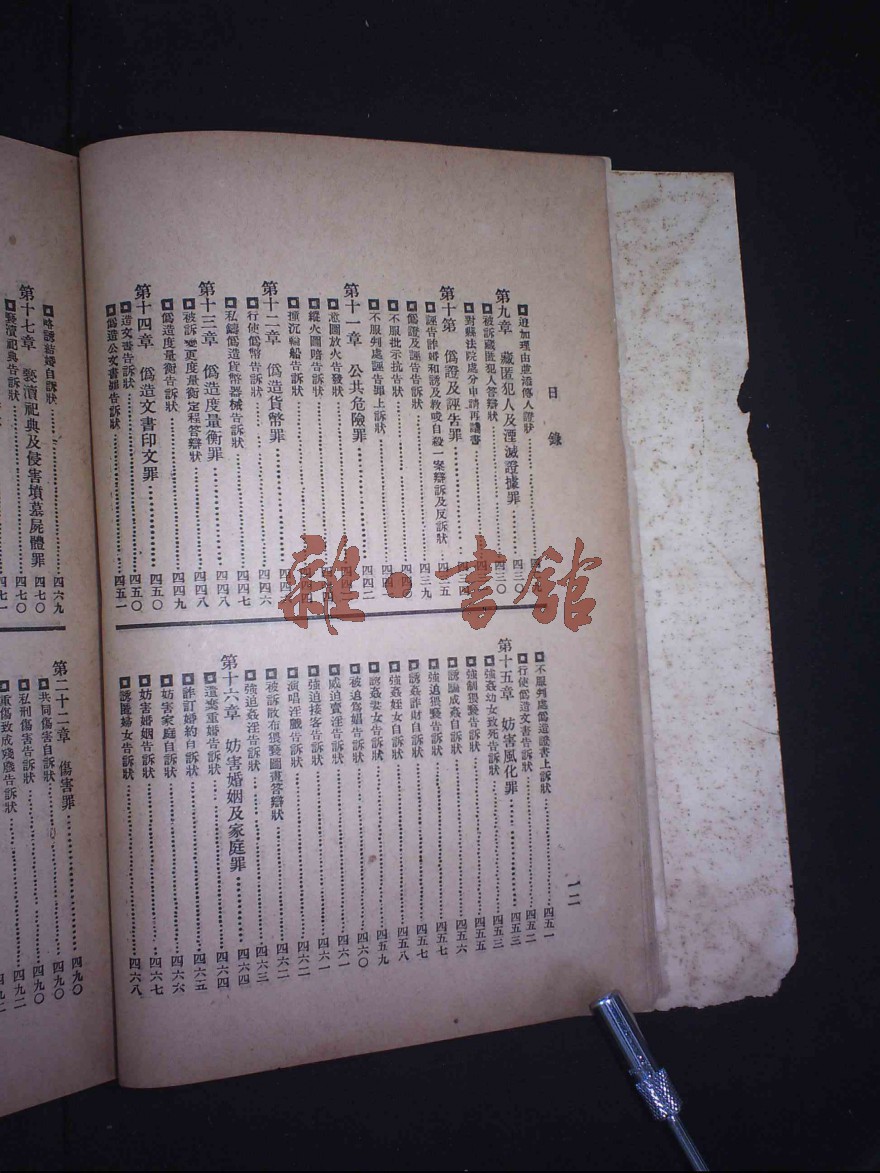 目錄
一二
追加理由並添傳人證狀 四二九
第九章 藏匿犯人及湮滅證據罪 四三〇
被訴藏匿犯人答辯狀 四三〇
對蘇法院處分申請再議書 四三四
第十章 偽證及誣告罪 四三五
誣告詐婚和誘及教唆自殺一案辯訴及反訴狀 四三五
偽證及誣告告訴狀 四三九
不服批示抗告狀 四四〇
不服判處誣告罪上訴狀
第十一章 公共危險罪 四四二
意圖放火告發狀
縱火圖賠告訴狀
撞沉輪船告訴狀
第十二章 偽造貨幣罪 四四六
行使偽幣告訴狀 四四六
私鑄偽造貨幣器械告訴狀 四四七
第十三章 偽造度量衡罪 四四八
被訴變更度量衡定程答辯狀 四四八
偽造度量衡告訴狀 四四九
第十四章 偽造文書印文罪 四五〇
造文書告訴狀 四五〇
偽造公文書罪告訴狀 四五一
不服判處偽造證書上訴狀 四五一
行使偽造文書告訴狀 四五二
第十五章 妨害風化罪 四五三
強姦幼女致死告訴狀 四五三
強制猥褻告訴狀 四五五
誘騙成姦自訴狀 四五六
強迫猥褻告訴狀 四五七
誘姦詐財自訴狀 四五七
強姦姪女自訴狀 四五八
誘姦妻女告訴狀 四五九
被迫為娼告訴狀 四六〇
威迫賣淫告訴狀 四六一
強迫接客告訴狀 四六一
演唱淫戲告訴狀 四六二
被訴散布猥褻圖畫答辯狀 四六二
強迫姦淫告訴狀 四六三
第十六章 妨害婚姻及家庭罪 四六四
遺棄重婚告訴狀 四六四
詐訂婚約自訴狀 四六五
妨害家庭自訴狀 四六六
妨害婚姻告訴狀 四六七
誘匿婦女告訴狀 四六八
略誘結婚自訴狀 四六九
第十七章 褻瀆祀典及侵害墳墓屍體罪 四七〇
褻瀆祀典告訴狀 四七〇
四七一
第二十二章 傷害罪 四九〇
共同傷害自訴狀 四九〇
私刑傷害告訴狀 四九〇
重傷致成殘廢告訴狀 四九二
雜·書舘